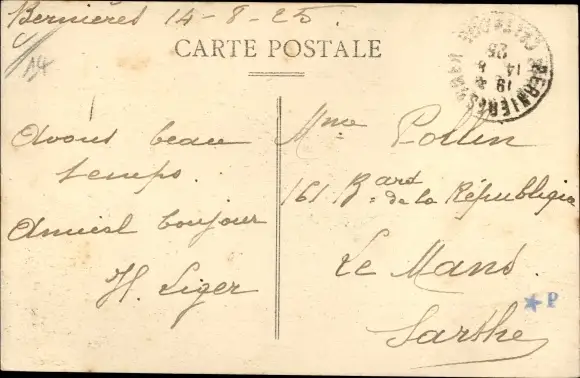 Bernières 14-8-25.
14
CARTE POSTALE
BERNIERES S/MER
CALVADOS
19 *
14 8
25
Avons beau
temps.
Amical bonjour
H. Liger
Mme Pollin
161 Bard de la République
Le Mans.
Sarthe
★ P